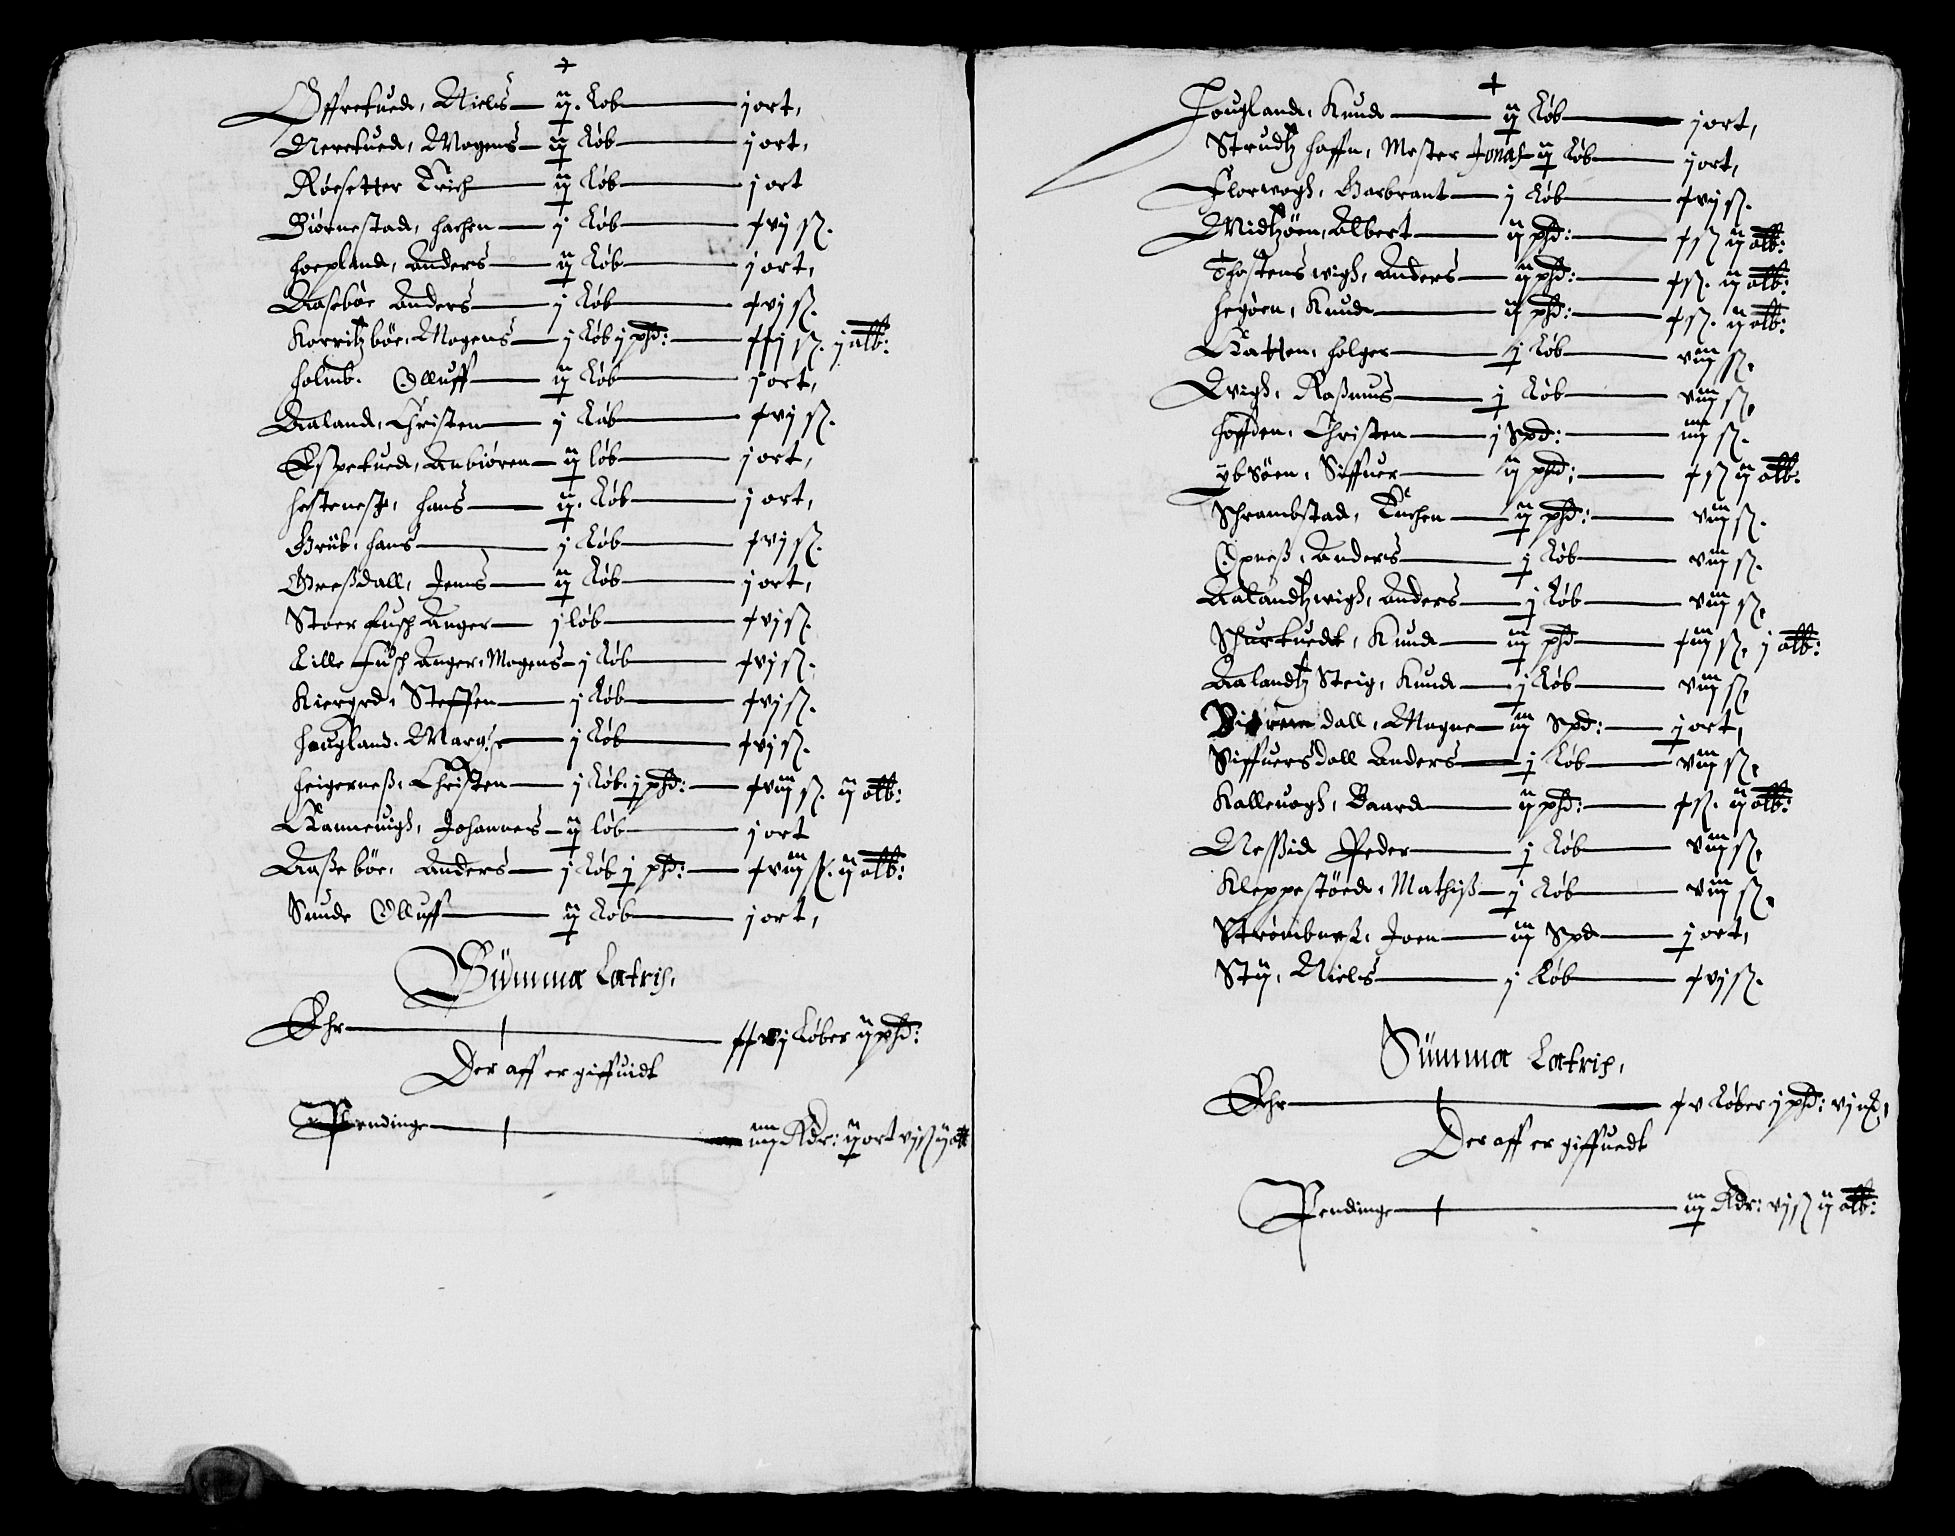 Øffretued, Niels — ij. Løb — j ort,
Neretued, Mogens — ij Løb — j ort,
Røesetter Erich — ij Løb — j ort
Biørnestad, Hachen — j Løb — xvj ß.
Hopland, Anders — ij Løb — j ort,
Aasebøe Anders — j Løb — xvj ß.
Korritzbøe, Mogens — j Løb j phd: — xxj ß. j alb:
Holmb. Olluff — ij Løb — j ort,
Aaland, Christen — j Løb — xvj ß.
Espetued, Anbiøren — ij løb — j ort,
Hestenes, Hans — ij. Løb — j ort,
Grüb, Hans — j Løb — xvj ß.
Greßdall, Jens — ij Løb — j ort,
Stoer Fusch Anger — j løb — xvj ß.
Lille Fusch Anger, Mogens — j Løb — xvj ß.
Kiergrd, Steffen — j Løb — xvj ß.
Hougland. — j Løb — xvj ß.
Heigerneß, Christen — j Løb. j phd: — xviij ß. ij alb:
Rameuigh, Johannes — ij løb — j ort
Aaßebøe, Anders — j Løb j phd: — xviij ß. ij alb:
Sunde Olluff — ij Løb — j ort,
Summa Lateris,
Ehr — xxvj Løber ij phd:
Der aff er giffuidt
Pendinge — iiij Rdr: ij ort vj ß ij alb
Hougland, Knud — ij Løb — j ort,
Strudtz Haffn, Mester Jonas — ij Løb — j ort,
Florwogh, Garbrant — j Løb — xvj ß.
Midtzøen, Albert — ij phd: — x ß ij alb:
Thostenswigh, Anders — ij phd: — x ß. ij alb:
Hegøen, Knud — ij phd: — x ß. ij alb:
Ratten, Holger — j Løb — viij ß.
Evigh, Raßmus — j Løb — viij ß,
Hoffden, Christen — j Spd: — iiij ß.
ÿbsøen, Siffuer — ij phd: — x ß ij alb.
Schrambstad, — ij phd: — viij ß.
Opneß, Anders — j Løb — viij ß.
Aalandtzwigh, Anders — j Løb — viij ß,
Schurtuedt, Knud — iij phd — xiij ß, j alb:
Aalandtz Steig, Knud — j Løb — viij ß,
Biørnedall, Magne — iij Spd: — j ort,
Siffuersdall Anders — j Løb — viij ß,
Kalleuogh, Baard — ij phd: — x ß. ij alb:
Nessid Peder — j Løb — viij ß,
Kleppestøed, Mathiß — j Løb — viij ß,
Strømbneß, Joen — iij Spd — j ort,
Stÿ, Niels — j Løb — xvj ß.
Summa Lateris,
Ehr — xv Løber j phd: vj
Der aff er giffuedt
Pendinge — iij Rdr: vj ß ij alb: